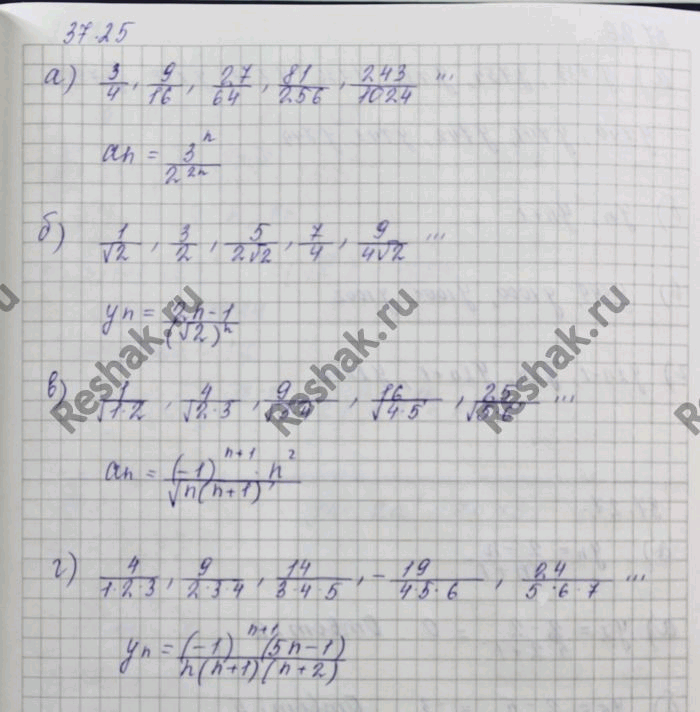 37.25
а) 3/4, 9/16, 27/64, 81/256, 243/1024 ...
an = 3^n/2^2n
б) 1/√2, 3/2, 5/2√2, 7/4, 9/4√2 ...
yn = 2n-1/(√2)^n
в) 1/√1·2, 4/√2·3, 9/√3·4, 16/√4·5, 25/√5·6 ...
an = (-1)^n+1 · n^2/√n(n+1)
г) 4/1·2·3, 9/2·3·4, 14/3·4·5, -19/4·5·6, 24/5·6·7 ...
yn = (-1)^n+1 (5n-1)/n(n+1)(n+2)
Reshak.ru
Reshak.ru
Reshak.ru